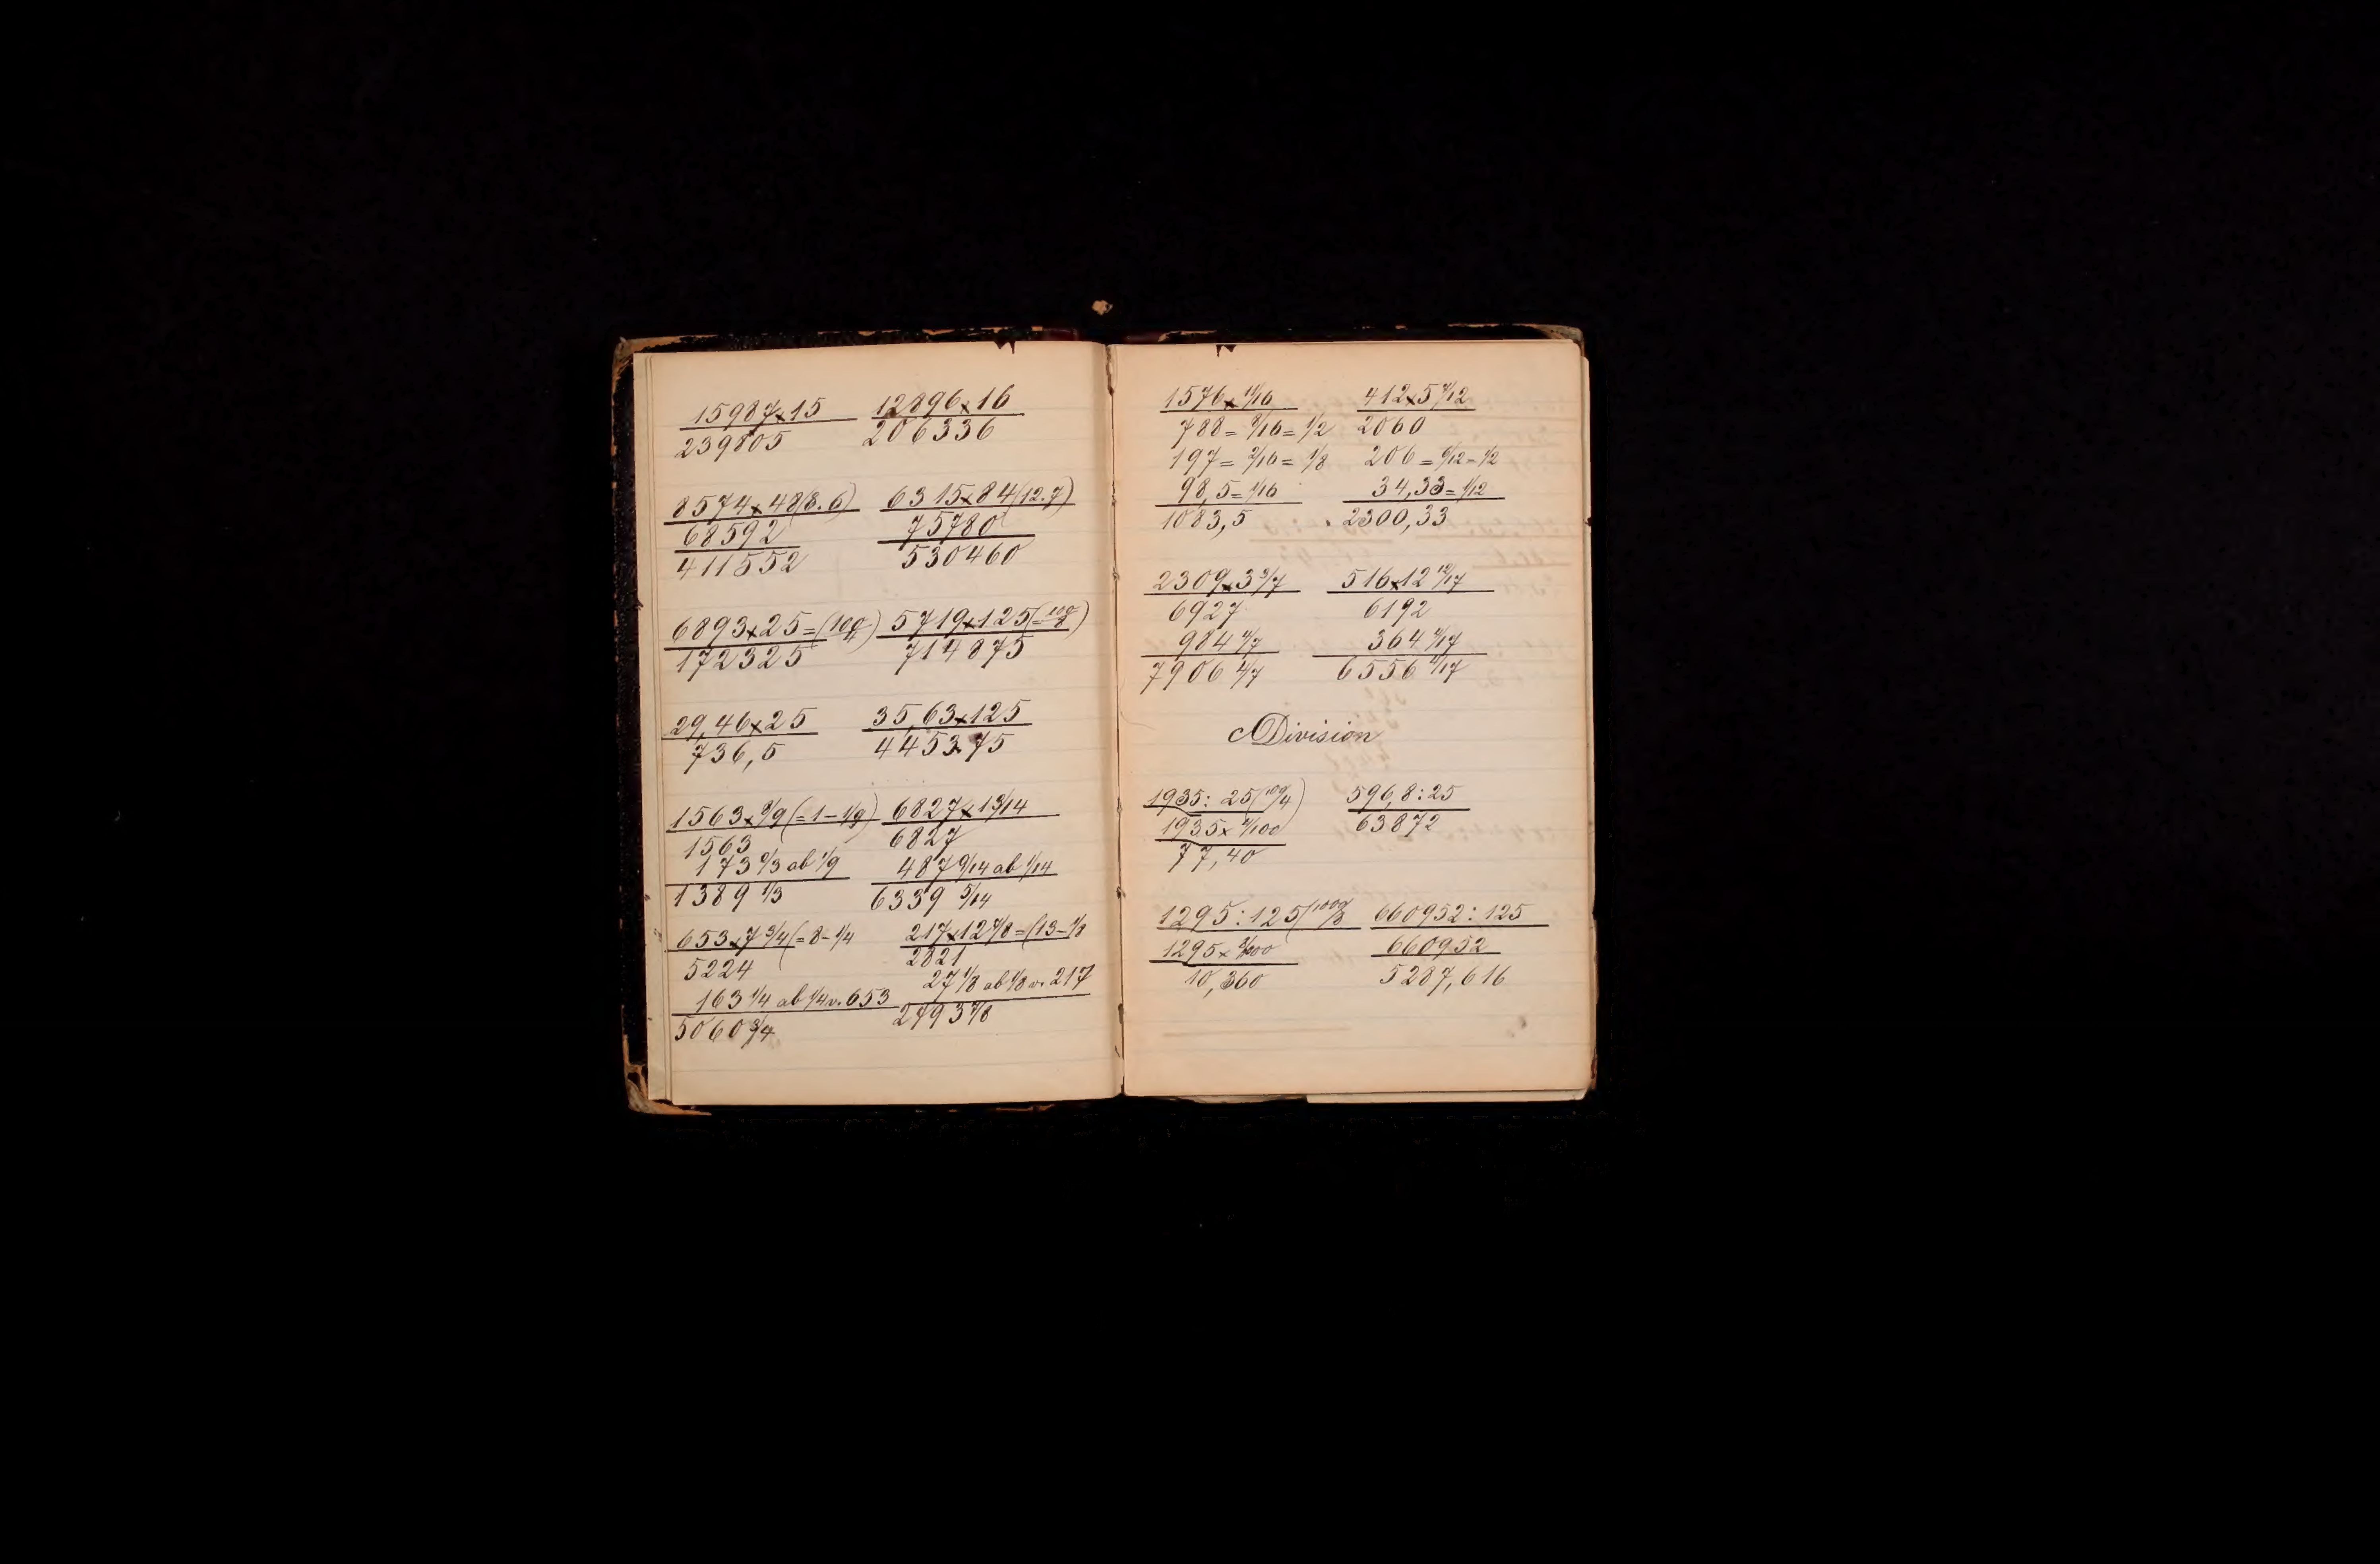 15987x15
239805
12896x16
206336
8574x48(8.6)
68592
411552
6315x84(12.7)
75780
530460
6893x25=(100/4)
172325
5719x125(=100/8)
714875
29,46x25
736,5
35,63x125
4453.75
1563x8/9(=1-1/9)
1563
173 6/3 ab 1/9
1389 1/3
6827x13/14
6827
487 9/14 ab 1/14
6339 5/14
653x7 3/4(=8-1/4
5224
163 1/4 ab 1/4 v. 653
5060 3/4
217x12 7/8=(13-1/8
2821
27 1/8 ab 1/8 v. 217
2793 7/8
1576x11/16
788=8/16=1/2
197=2/16=1/8
98,5=1/16
1083,5
412x5 7/12
2060
206=6/12=1/2
34,33=1/12
2300,33
2309x3 3/7
6927
984 4/7
7906 4/7
516x12 12/17
6192
364 4/17
6556 4/17
Division
1935: 25(100/4)
1935x4/100
77,40
596,8:25
63872
1295:125(1000/8
1295x8/1000
10,360
660952:125
660952
5287,616